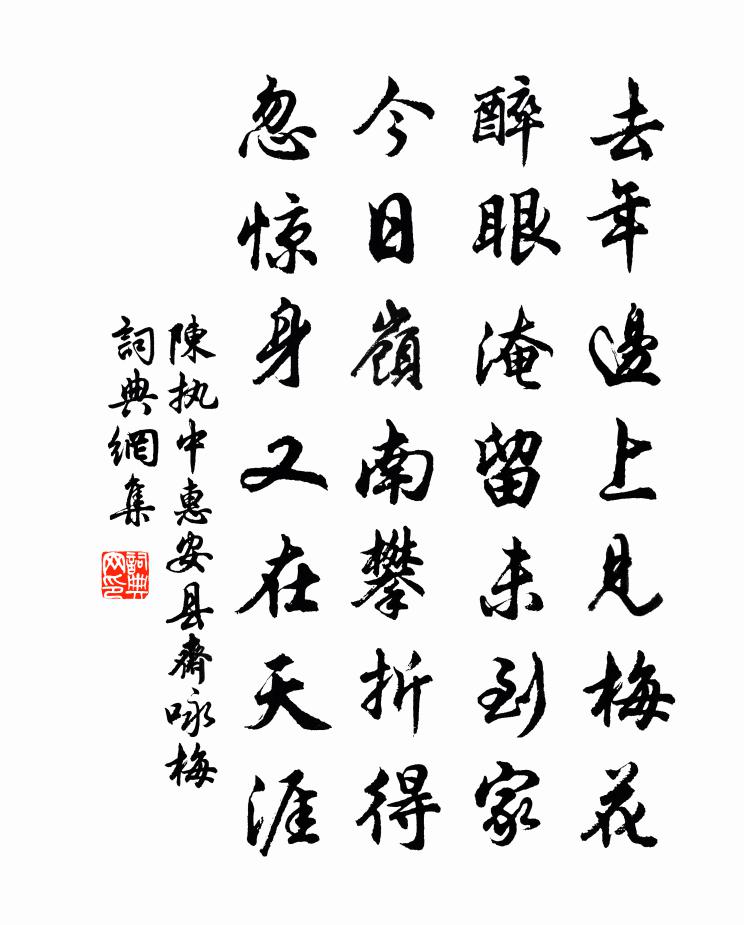 去年邊上見梅花
醉眼淹留未到家
今日嶺南攀折得
忽惊身又在天涯
陳执中惠安县齋咏梅
詞典網集
詞典网印